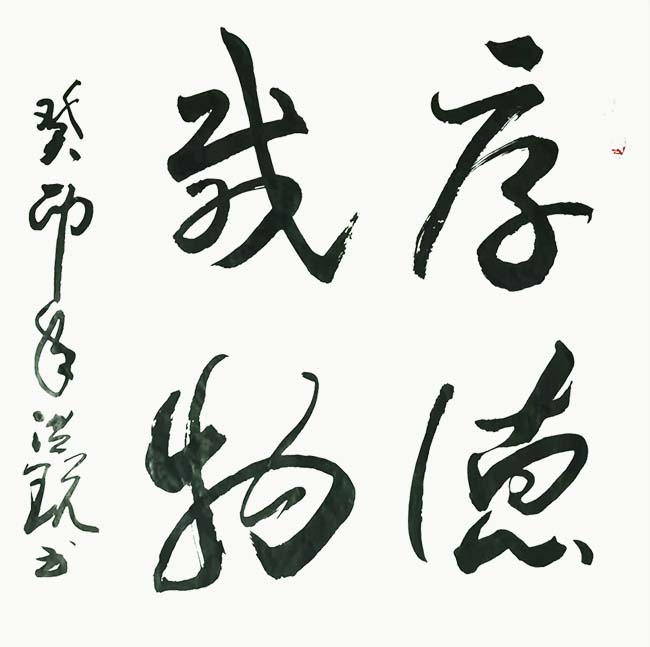 厚德
载物
癸卯年洪钪书